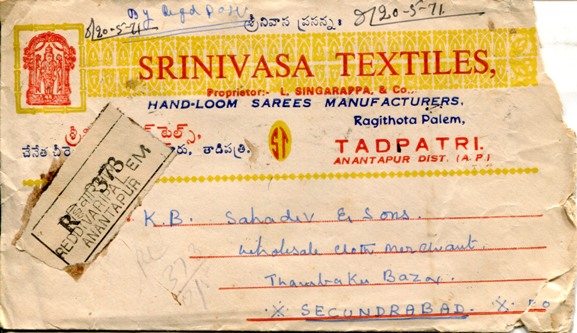 By Regd post
శ్రీనివాస ప్రసన్నః
d/20-5-71
d/20-5-71
SRINIVASA TEXTILES,
Proprietor:- L. SINGARAPPA, & Co.,
HAND-LOOM SAREES MANUFACTURERS,
Ragithota Palem,
TADPATRI.
ANANTAPUR DIST. (A.P)
శ్రీ
చేనేత చీరె
తాడిపత్రి.
ST
R 373
REDDIVARIPALEM
ANANTAPUR
K.B. Sahadev & Sons.
wholesale cloth merchant.
Thambaku Bazar.
X SECUNDRABAD. X